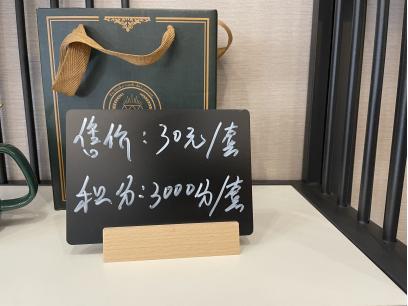 售价:30元/套
积分:3000分/套